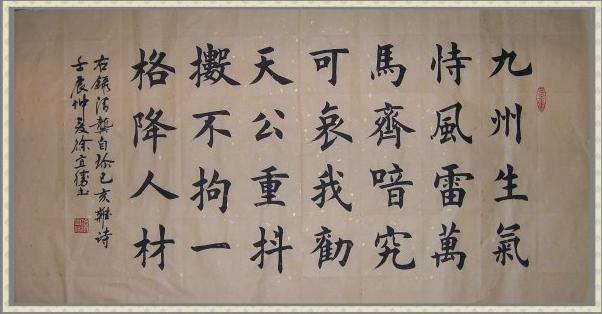 九州生氣
恃風雷萬
馬齊喑究
可哀我勸
天公重抖
擻不拘一
格降人材
右錄清龔自珍己亥雜诗
壬辰仲夏徐宜書